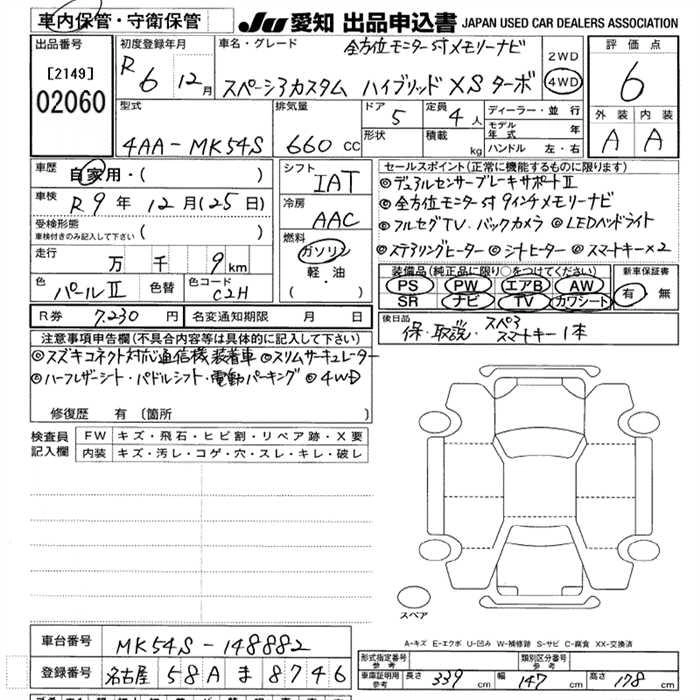 車内保管・守衛保管
JU 愛知 出品申込書 JAPAN USED CAR DEALERS ASSOCIATION
出品番号
[2149]
02060
初度登録年月
R6 12月
車名・グレード 全方位モニター付メモリーナビ
スペーシアカスタム ハイブリッドXS ターボ
2WD
4WD
評価点
6
外装 内装
A A
型式
4AA-MK54S
排気量
660 cc
ドア 5
形状
定員 4人
積載 kg
ディーラー・並行
モデル年式 年
ハンドル 左・右
車歴
自家用・( )
車検 R9年12月(25日)
受検形態
車検付きのみ記入して下さい ( )
走行 万 千 9km
色 パールII 色替 色コード C2H
シフト
IAT
冷房
AAC
燃料
ガソリン
軽・油
( )
セールスポイント(正常に機能するものに限ります)
◎デュアルセンサーブレーキサポートII
◎全方位モニター付9インチメモリーナビ
◎フルセグTV・バックカメラ ◎LEDヘッドライト
◎ステアリングヒーター ◎シートヒーター ◎スマートキー×2
装備品(純正品に限り○をつけてください)
PS PW エアB AW
SR ナビ TV カワシート
新車保証書
有 無
R券 7,230円 名変通知期限 月 日
後日品
保・取説・スペアスマートキー1本
注意事項申告欄(不具合内容等は具体的に記入して下さい)
◎スズキコネクト対応通信機装着車 ◎スリムサーキュレーター
◎ハーフレザーシート・パドルシフト・電動パーキング ◎4WD
修復歴 有 (箇所 )
検査員記入欄
FW キズ・飛石・ヒビ割・リペア跡・X要
内装 キズ・汚レ・コゲ・穴・スレ・キレ・破レ
スペア
A-キズ E-エクボ U-凹み W-補修跡 S-サビ C-腐食 XX-交換済
車台番号 MK54S-148882
登録番号 名古屋 58A ま 8746
形式指定番号参考 類別区分番号参考
車庫証明用参考 長さ 339 cm 幅 147 cm 高さ 178 cm